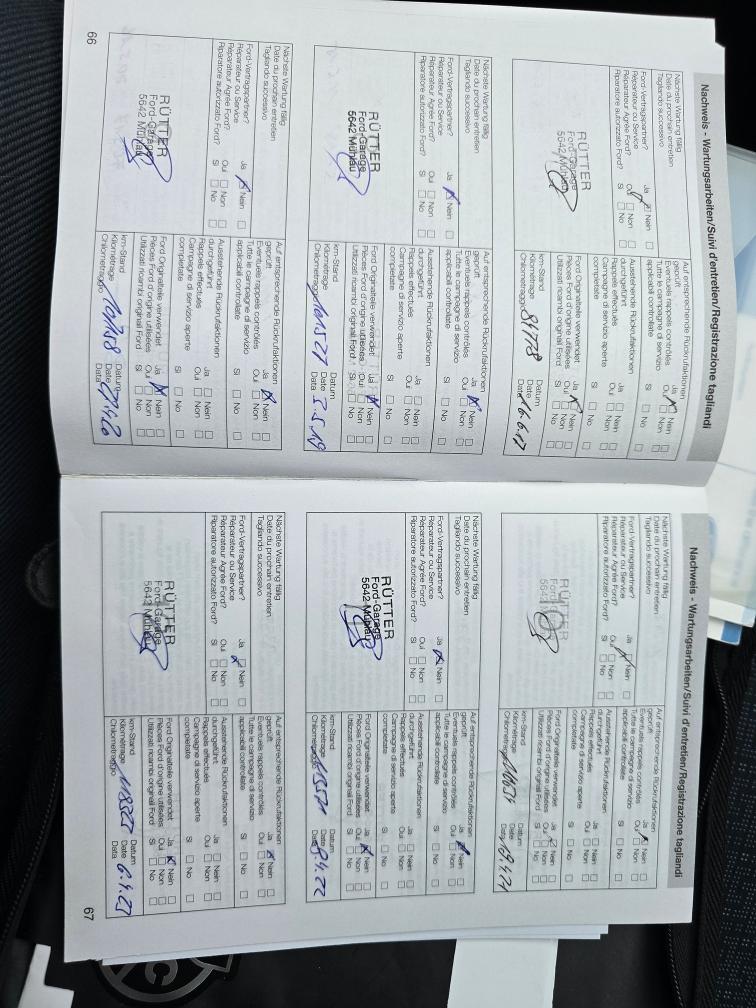 Nachweis - Wartungsarbeiten/Suivi d'entretien/Registrazione tagliandi
Nächste Wartung fällig
Date du prochain entretien
Tagliando successivo
Ford-Vertragspartner? Ja Nein
Réparateur ou Service
Réparateur Agréé Ford? Oui Non
Riparatore autorizzato Ford? Si No
RÜTTER
Ford-Garage
5642 Mühlau
Auf entsprechende Rückrufaktionen
geprüft Ja Nein
Eventuels rappels contrôlés Oui Non
Tutte le campagne di servizio
applicabili controllate Si No
Ausstehende Rückrufaktionen
durchgeführt Ja Nein
Rappels effectués Oui Non
Campagne di servizio aperte
completate Si No
Ford Originalteile verwendet Ja Nein
Pièces Ford d'origine utilisées Oui Non
Utilizzati ricambi original Ford Si No
km-Stand Datum
Kilométrage Date
Chilometraggio 84778 Data 16.6.17
Nächste Wartung fällig
Date du prochain entretien
Tagliando successivo
Ford-Vertragspartner? Ja Nein
Réparateur ou Service
Réparateur Agréé Ford? Oui Non
Riparatore autorizzato Ford? Si No
RÜTTER
Ford-Garage
5642 Mühlau
Auf entsprechende Rückrufaktionen
geprüft Ja Nein
Eventuels rappels contrôlés Oui Non
Tutte le campagne di servizio
applicabili controllate Si No
Ausstehende Rückrufaktionen
durchgeführt Ja Nein
Rappels effectués Oui Non
Campagne di servizio aperte
completate Si No
Ford Originalteile verwendet Ja Nein
Pièces Ford d'origine utilisées Oui Non
Utilizzati ricambi original Ford Si No
km-Stand Datum
Kilométrage Date
Chilometraggio 101527 Data 3.5.19
Nächste Wartung fällig
Date du prochain entretien
Tagliando successivo
Ford-Vertragspartner? Ja Nein
Réparateur ou Service
Réparateur Agréé Ford? Oui Non
Riparatore autorizzato Ford? Si No
RÜTTER
Ford-Garage
5642 Mühlau
Auf entsprechende Rückrufaktionen
geprüft Ja Nein
Eventuels rappels contrôlés Oui Non
Tutte le campagne di servizio
applicabili controllate Si No
Ausstehende Rückrufaktionen
durchgeführt Ja Nein
Rappels effectués Oui Non
Campagne di servizio aperte
completate Si No
Ford Originalteile verwendet Ja Nein
Pièces Ford d'origine utilisées Oui Non
Utilizzati ricambi original Ford Si No
km-Stand Datum
Kilométrage Date
Chilometraggio Data
66
Nachweis - Wartungsarbeiten/Suivi d'entretien/Registrazione tagliandi
Nächste Wartung fällig
Date du prochain entretien
Tagliando successivo
Ford-Vertragspartner? Ja Nein
Réparateur ou Service
Réparateur Agréé Ford? Oui Non
Riparatore autorizzato Ford? Si No
RÜTTER
Ford-Garage
Auf entsprechende Rückrufaktionen
geprüft Ja Nein
Eventuels rappels contrôlés Oui Non
Tutte le campagne di servizio
applicabili controllate Si No
Ausstehende Rückrufaktionen
durchgeführt Ja Nein
Rappels effectués Oui Non
Campagne di servizio aperte
completate Si No
Ford Originalteile verwendet Ja Nein
Pièces Ford d'origine utilisées Oui Non
Utilizzati ricambi original Ford Si No
km-Stand Datum
Kilométrage Date
Chilometraggio Data 19.4.21
Nächste Wartung fällig
Date du prochain entretien
Tagliando successivo
Ford-Vertragspartner? Ja Nein
Réparateur ou Service
Réparateur Agréé Ford? Oui Non
Riparatore autorizzato Ford? Si No
RÜTTER
Ford-Garage
5642 Mühlau
Auf entsprechende Rückrufaktionen
geprüft Ja Nein
Eventuels rappels contrôlés Oui Non
Tutte le campagne di servizio
applicabili controllate Si No
Ausstehende Rückrufaktionen
durchgeführt Ja Nein
Rappels effectués Oui Non
Campagne di servizio aperte
completate Si No
Ford Originalteile verwendet Ja Nein
Pièces Ford d'origine utilisées Oui Non
Utilizzati ricambi original Ford Si No
km-Stand Datum
Kilométrage Date
Chilometraggio Data
Nächste Wartung fällig
Date du prochain entretien
Tagliando successivo
Ford-Vertragspartner? Ja Nein
Réparateur ou Service
Réparateur Agréé Ford? Oui Non
Riparatore autorizzato Ford? Si No
RÜTTER
Ford-Garage
5642 Mühlau
Auf entsprechende Rückrufaktionen
geprüft Ja Nein
Eventuels rappels contrôlés Oui Non
Tutte le campagne di servizio
applicabili controllate Si No
Ausstehende Rückrufaktionen
durchgeführt Ja Nein
Rappels effectués Oui Non
Campagne di servizio aperte
completate Si No
Ford Originalteile verwendet Ja Nein
Pièces Ford d'origine utilisées Oui Non
Utilizzati ricambi original Ford Si No
km-Stand Datum
Kilométrage Date
Chilometraggio Data 6.4.23
67